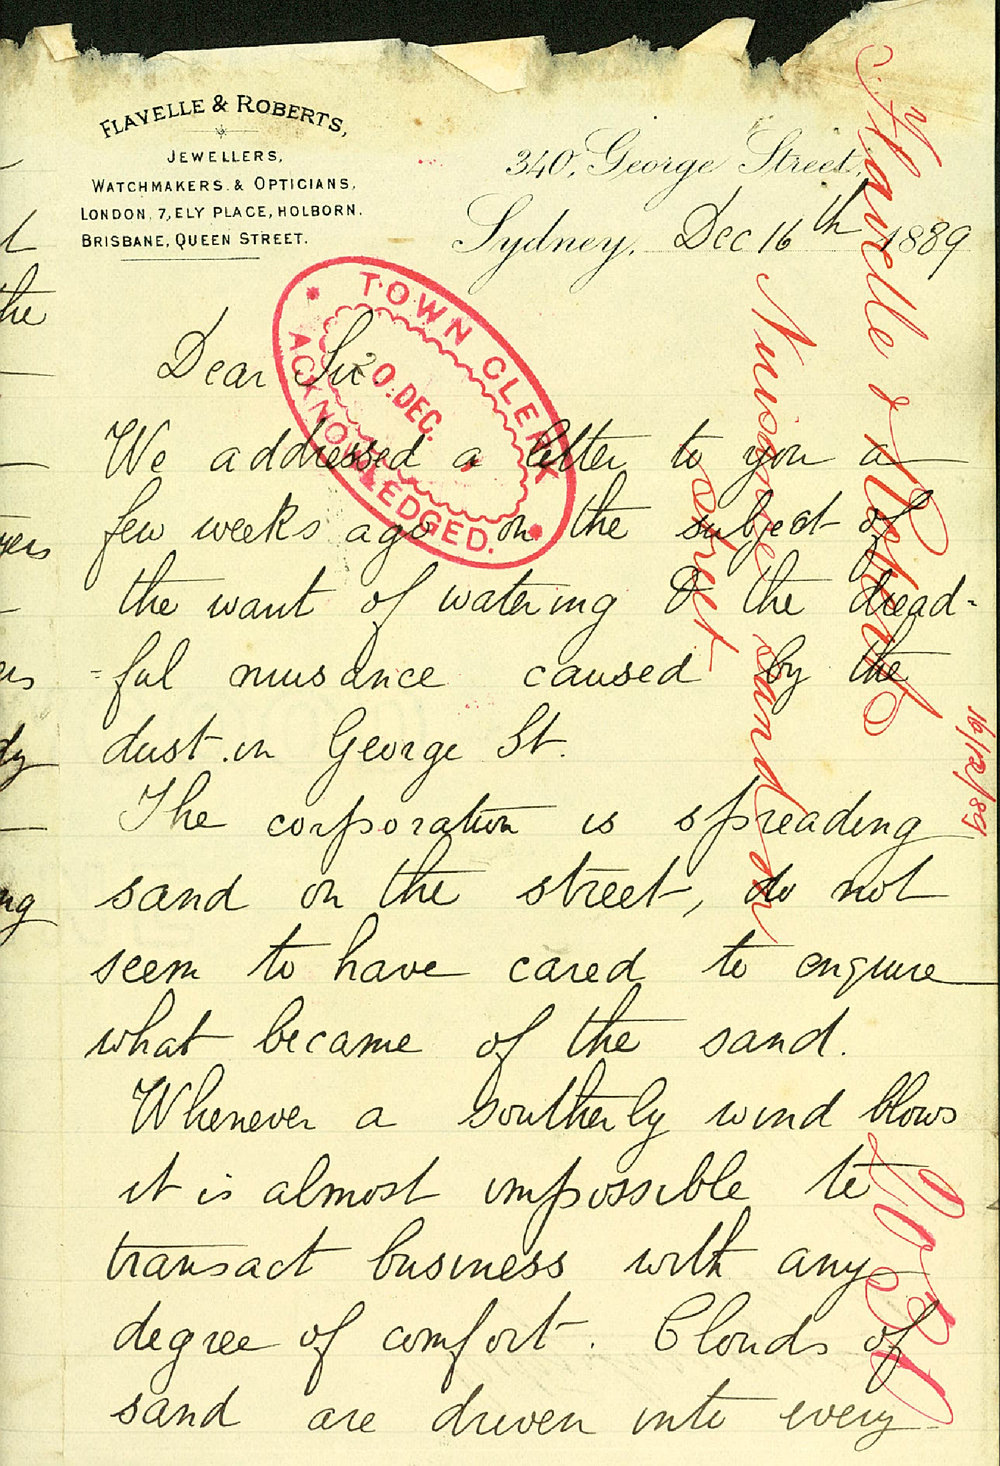 FLAVELLE & ROBERTS,
JEWELLERS,
WATCHMAKERS & OPTICIANS,
LONDON, 7, ELY PLACE, HOLBORN.
BRISBANE, QUEEN STREET.
340, George Street,
Sydney, Dec 16th 1889
TOWN CLERK
20.DEC.
ACKNOWLEDGED.
Dear Sir
We addressed a letter to you a
few weeks ago on the subject of
the want of watering & the dread-
=ful nuisance caused by the
dust in George St.
The corporation is spreading
sand on the street, do not
seem to have cared to enquire
what became of the sand.
Whenever a Southerly wind blows
it is almost impossible to
transact business with any
degree of comfort. Clouds of
sand are driven into every
Flavelle & Roberts
Nuisance sand on
street
16/12/89
the